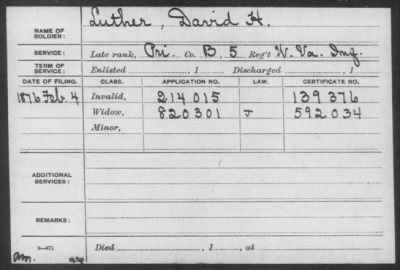 NAME OF SOLDIER: Luther, David H.
SERVICE: Late rank, Pri. Co. B, 5 Reg't W. Va. Inf.
TERM OF SERVICE: Enlisted , 1 Discharged , 1
DATE OF FILING. CLASS. APPLICATION NO. LAW. CERTIFICATE NO.
1876 Feb. 4 Invalid, 214 015 139 376
Widow, 820.301 J 592 034
Minor,
ADDITIONAL SERVICES:
REMARKS:
Died , 1 , at